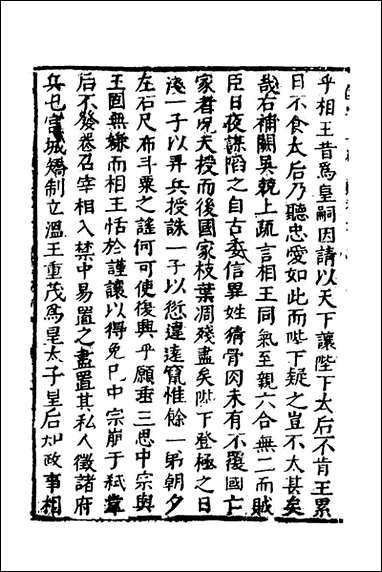 乎相王昔爲皇嗣因請以天下讓陛下太后不肯王累
日不食太后乃聽忠愛如此而陛下疑之豈不太甚矣
哉右補闕吳兢上疏言相王同氣至親六合無二而賊
臣日夜謀謟之自古委信異姓猜骨肉未有不覆國亡
家者况天授而後國家枝葉凋殘盡矣陛下登極之日
淺一子以弄兵授誅一子以愆違遠竄惟餘一弟朝夕
左右尺布斗粟之謠何可使復興乎願垂三思中宗與
王固無嫌而相王恬於謹讓以得免巳中宗崩于弒韋
后不發巻召宰相入禁中易置之盡置其私人徵諸府
兵屯宮城矯制立溫王重茂爲皇太子皇后知政事相